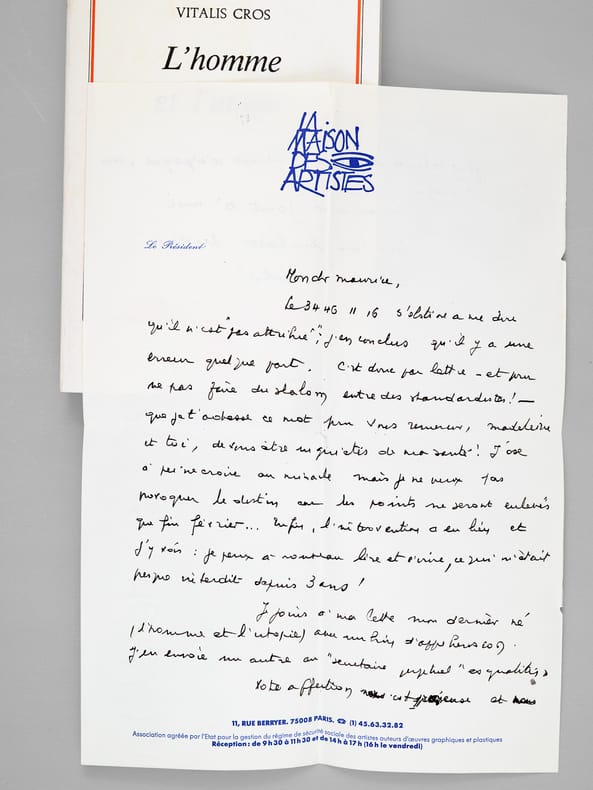 VITALIS CROS
L'homme
LA
MAISON
DES
ARTISTES
Le Président
Mon cher Maurice,
Le 34 46 11 16 s'obstine a me dire
qu'il n'est "pas attribué"; j'en conclus qu'il y a une
erreur quelque part. C'est donc par lettre - et pour
ne pas faire du slalom entre des standardistes! -
que je t'adresse ce mot pour vous remercier, madeleine
et toi, de vous être inquiétés de ma santé! J'ose
à peine croire au miracle mais je ne veux pas
provoquer le destin car les points ne seront enlevés
que fin février... Enfin, l'intervention a eu lieu et
j'y vois : je peux à nouveau lire et écrire, ce qui m'était
presque interdit depuis 3 ans!
Je joins à ma lettre mon dernier né
(l'homme et l'utopie) avec un lien d'affection.
J'en envoie un autre au "secrétaire perpétuel" es qualités
Votre affection nous est précieuse et nous
11, RUE BERRYER. 75008 PARIS. ☎ (1) 45.63.32.82
Association agréée par l'Etat pour la gestion du régime de sécurité sociale des artistes auteurs d'œuvres graphiques et plastiques
Réception : de 9 h 30 à 11 h 30 et de 14 h à 17 h (16 h le vendredi)